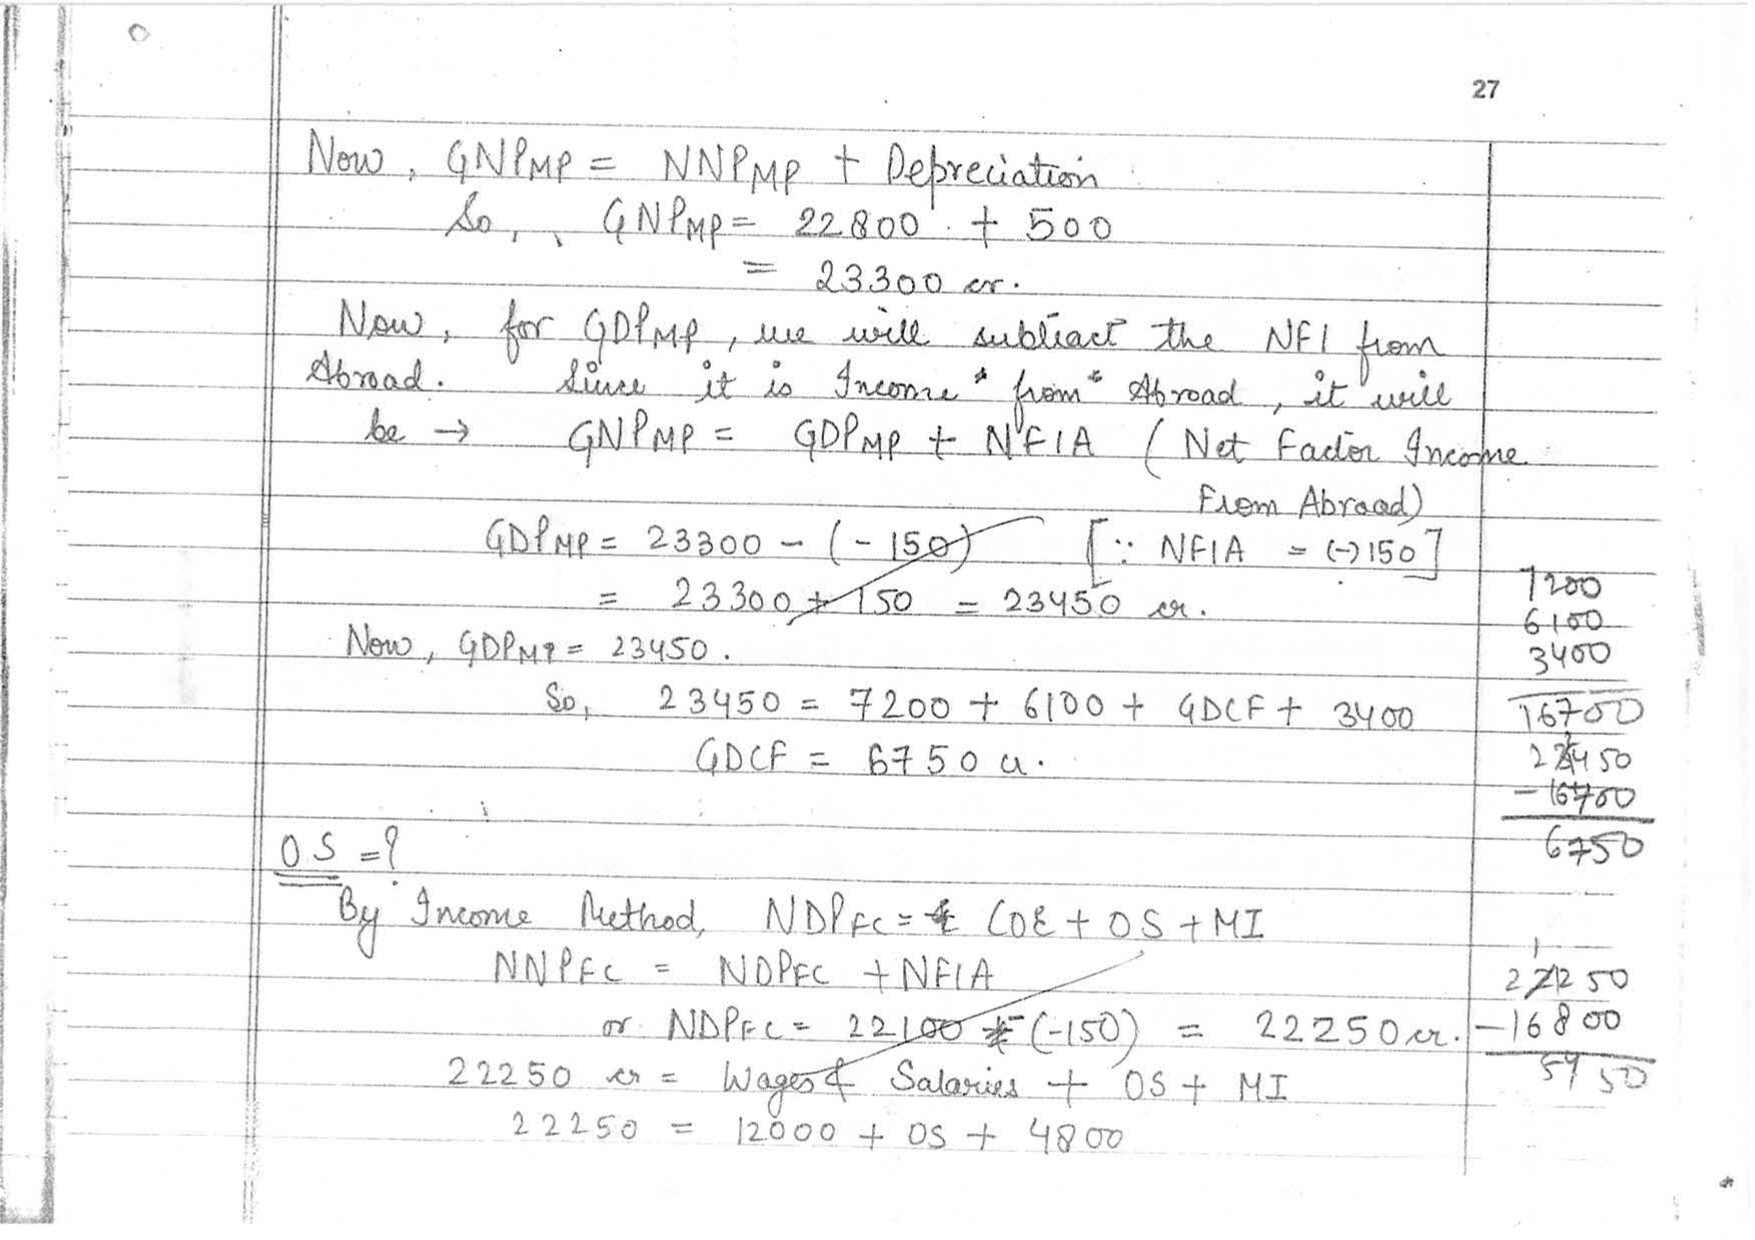 27
Now, GNPMP = NNPMP + Depreciation
So, GNPMP = 22800 + 500
= 23300 cr.
Now, for GDPMP, we will subtract the NFI from
Abroad. Since it is Income * from * Abroad, it will
be → GNPMP = GDPMP + NFIA (Net Factor Income
From Abroad)
GDPMP = 23300 - (-150) [∵ NFIA = (-) 150]
= 23300 + 150 = 23450 cr.
Now, GDPMP = 23450.
So, 23450 = 7200 + 6100 + GDCF + 3400
GDCF = 6750 cr.
7200
6100
3400
16700
23450
- 16700
6750
OS = ?
By Income Method, NDPFC = COE + OS + MI
NNPFC = NDPFC + NFIA
or NDPFC = 22100 - (-150) = 22250 cr.
22250 cr = Wages & Salaries + OS + MI
22250 = 12000 + OS + 4800
22250
- 16800
5450